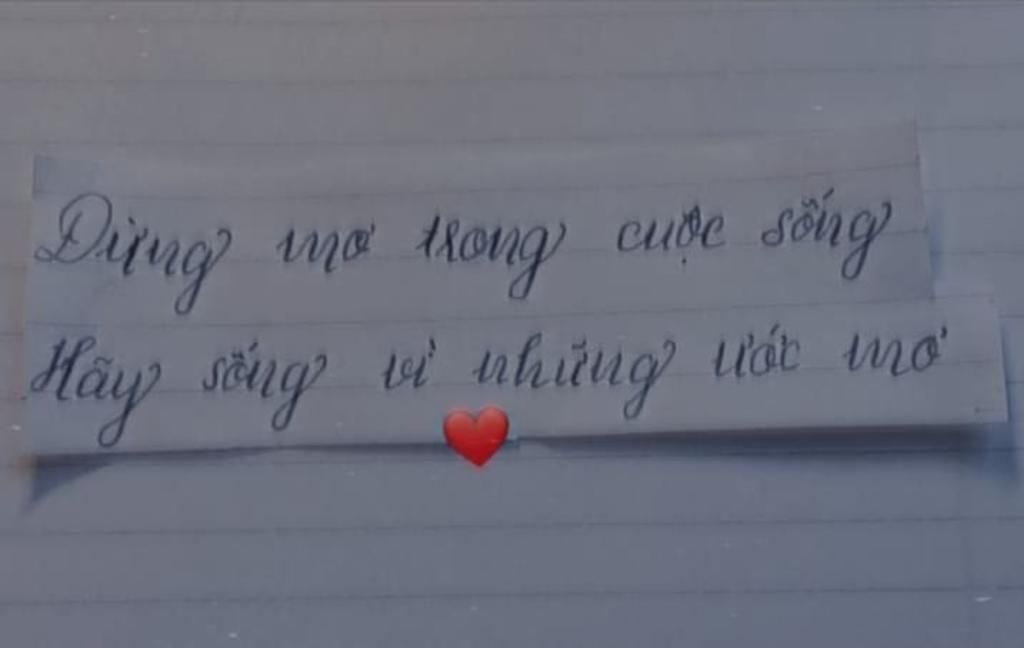 Đừng mơ trong cuộc sống
Hãy sống vì những ước mơ